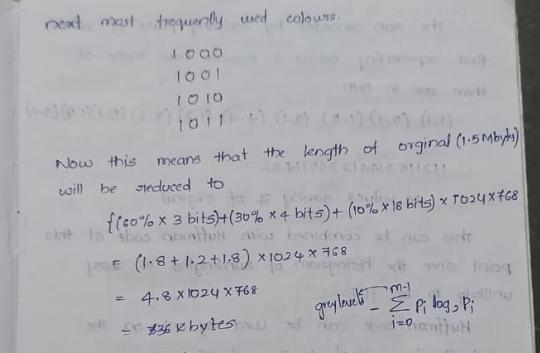 next most frequently used colours.
1000
1001
1010
1011
Now this means that the length of orginal (1.5Mbyts)
will be reduced to
{(60% × 3 bits)+(30% × 4 bits) + (10% × 18 bits) × 1024 × 768
= (1.8 + 1.2 + 1.8) × 1024 × 768
= 4.8 × 1024 × 768
= 836 kbytes
greylevels - ∑ Pi log2 Pi
m-1
i=0